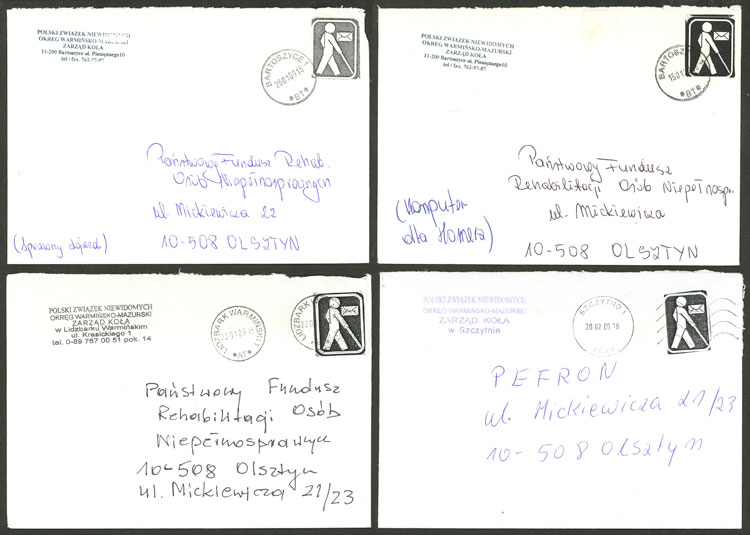 POLSKI ZWIĄZEK NIEWIDOMYCH
OKRĘG WARMIŃSKO-MAZURSKI
ZARZĄD KOŁA
11-200 Bartoszyce ul. Pieniężnego10
tel / fax. 762-97-87
BARTOSZYCE 1
*BT*
Państwowy Fundusz Rehab.
Osób Niepełnosprawnych
ul. Mickiewicza 22
10-508 OLSZTYN
POLSKI ZWIĄZEK NIEWIDOMYCH
OKRĘG WARMIŃSKO-MAZURSKI
ZARZĄD KOŁA
11-200 Bartoszyce ul. Pieniężnego10
tel / fax. 762-97-87
BARTOSZ
*BT*
Państwowy Fundusz
Rehabilitacji Osób Niepełnospr.
ul. Mickiewicza
10-508 OLSZTYN
(Komputer
dla Homera)
POLSKI ZWIĄZEK NIEWIDOMYCH
OKRĘG WARMIŃSKO-MAZURSKI
ZARZĄD KOŁA
w Lidzbarku Warmińskim
ul. Krasickiego 1
tel. 0-89 767 00 51 pok. 14
LIDZBARK WARMIŃSKI 1
*AT*
LIDZBARK WA
Państwowy Fundusz
Rehabilitacji Osób
Niepełnosprawnych
10-508 Olsztyn
ul. Mickiewicza 21/23
POLSKI ZWIĄZEK NIEWIDOMYCH
OKRĘG WARMIŃSKO-MAZURSKI
ZARZĄD KOŁA
w Szczytnie
SZCZYTNO 1
PEFRON
ul. Mickiewicza 21/23
10-508 Olsztyn